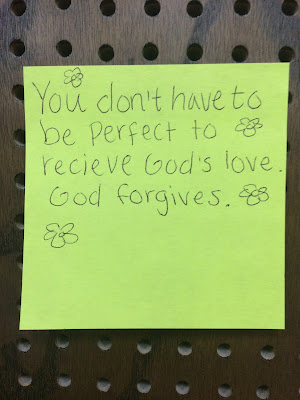 You don't have to
be perfect to
recieve God's love.
God forgives.